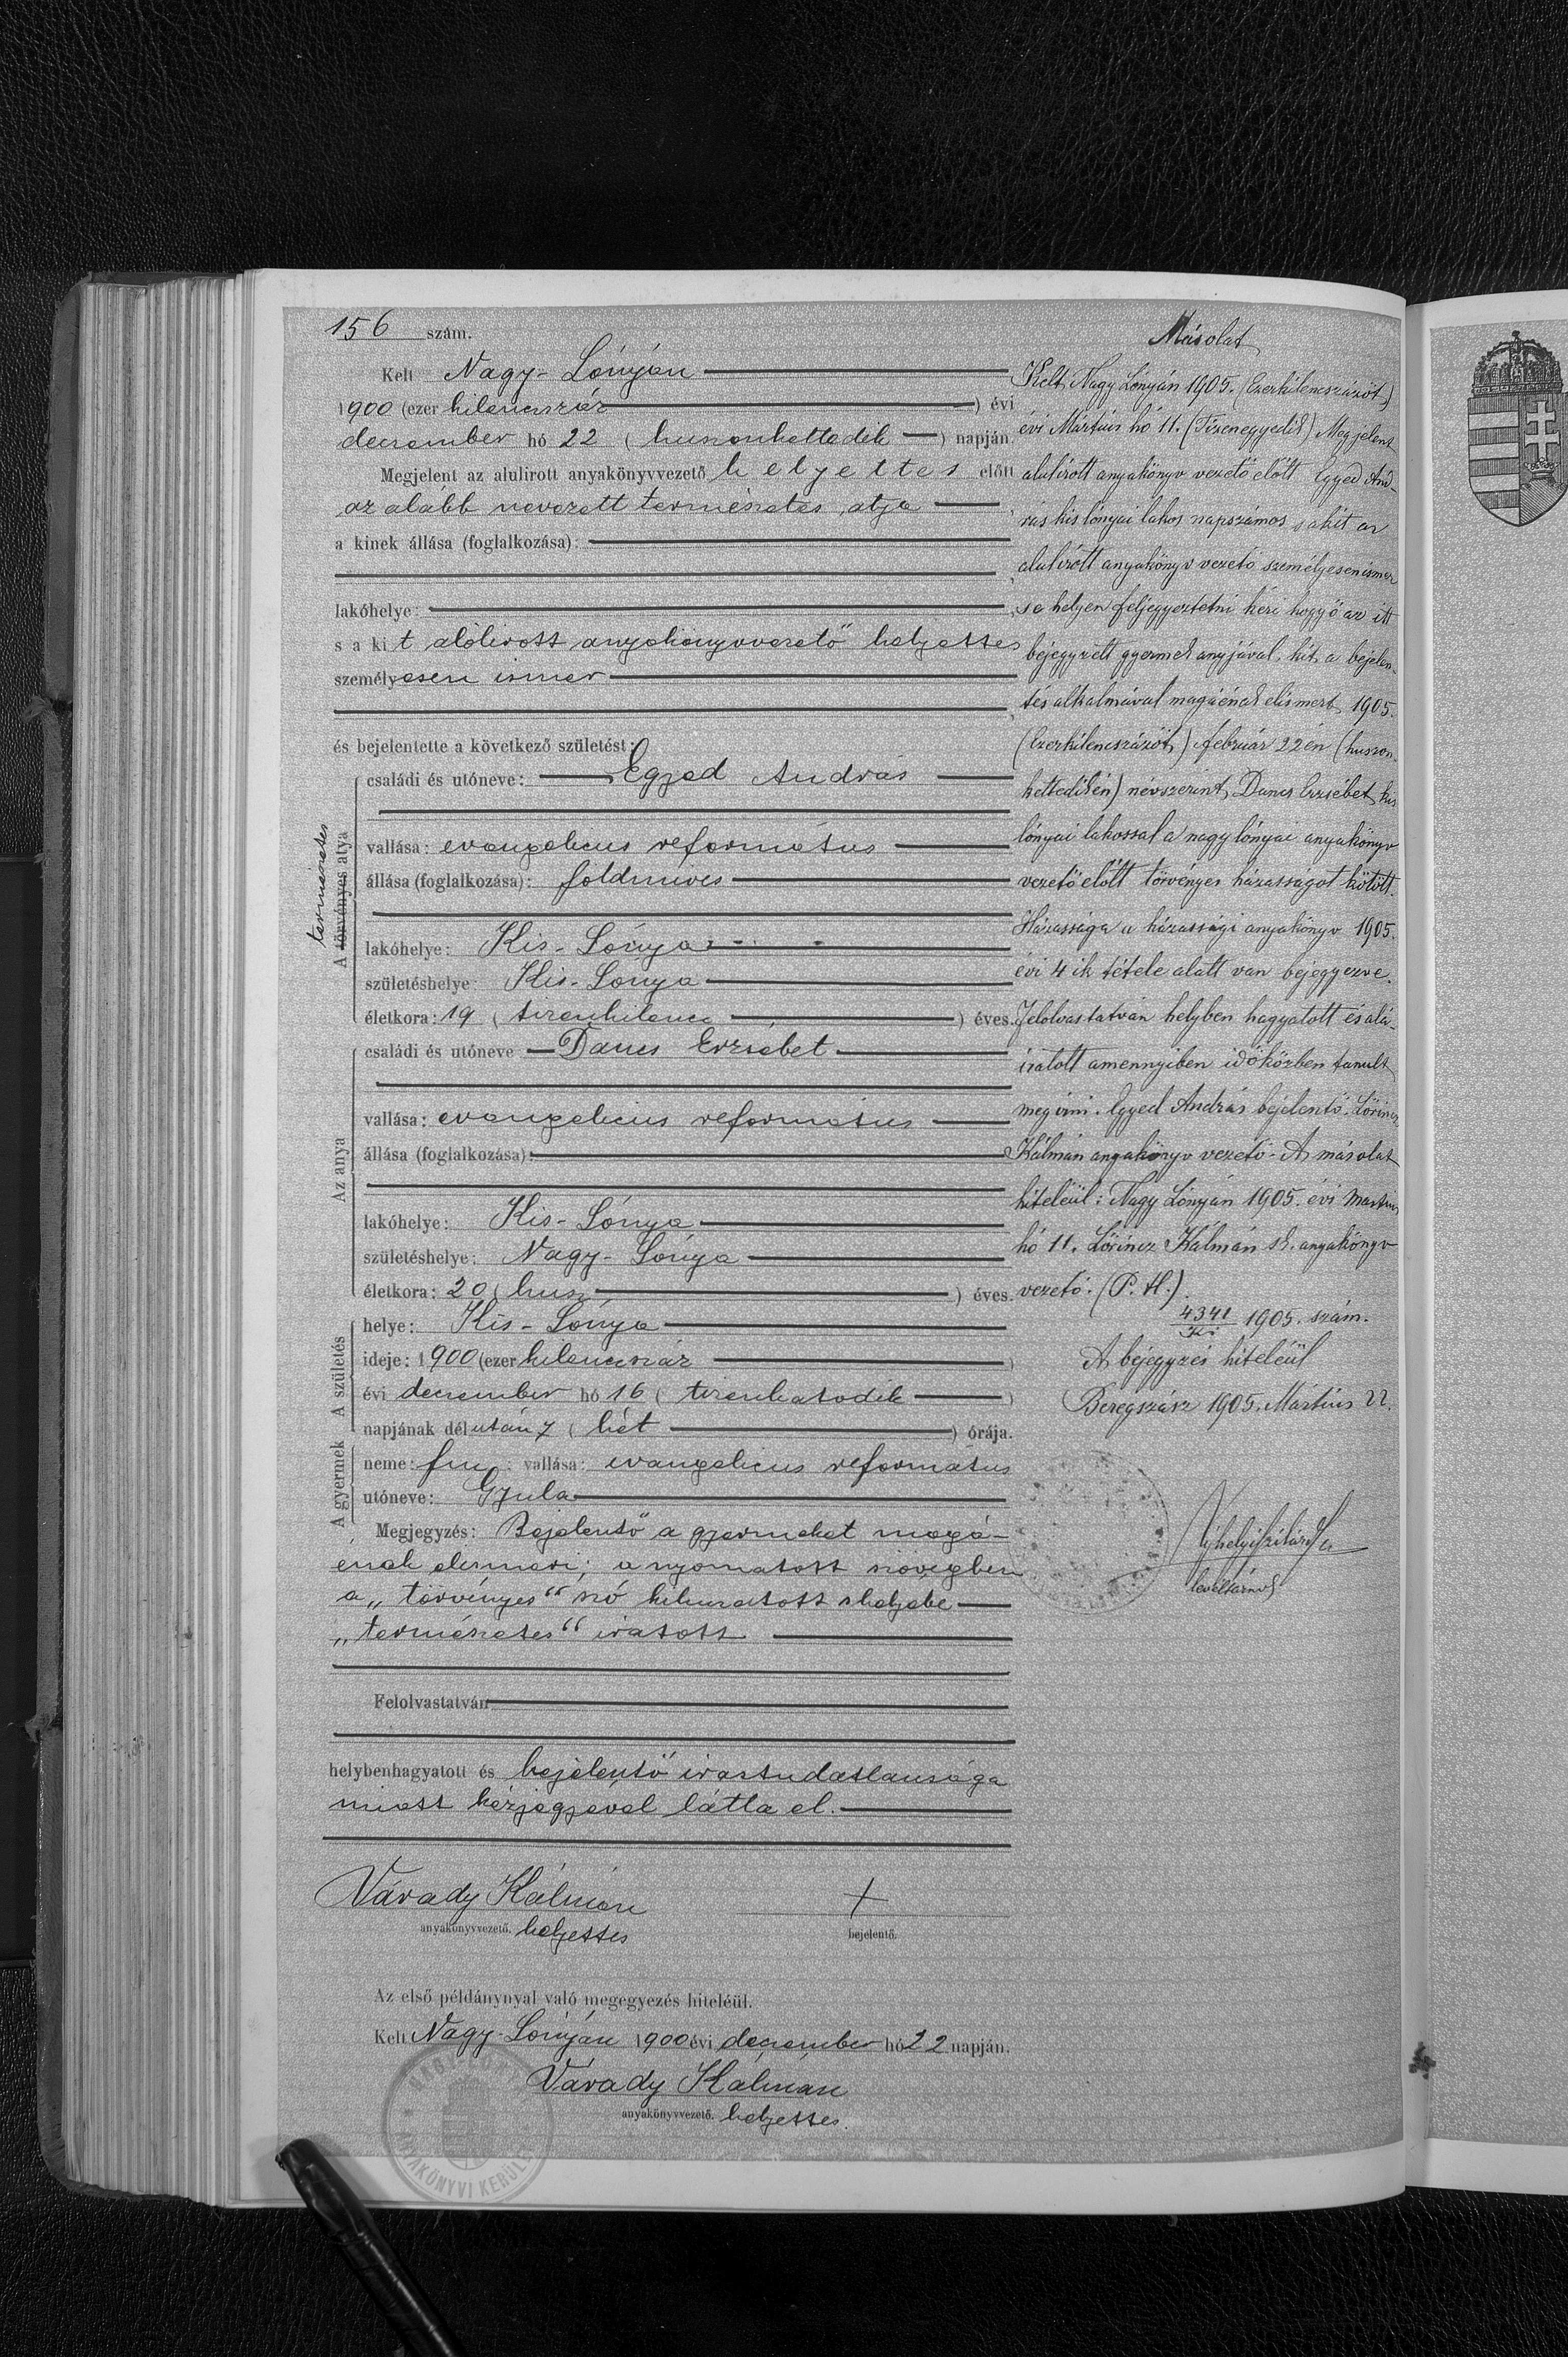 156 szám.
Kelt Nagy-Lónyán
1900 (ezer kilenczszáz) évi
december hó 22 (huszonkettedik) napján.
Megjelent az alulirott anyakönyvvezető helyettes előtt
az alább nevezett természetes atja
a kinek állása (foglalkozása):
lakóhelye:
s a kit alólirott anyakönyvvezető helyettes
személyesen ismer
és bejelentette a következő születést:
természetes
A törvényes atya
családi és utóneve: Egyed András
vallása: evangelicus református
állása (foglalkozása): földmíves
lakóhelye: Kis-Lónya
születéshelye: Kis-Lónya
életkora: 19 (tizenkilencz) éves.
Az anya
családi és utóneve Dancs Erzsébet
vallása: evangelicus református
állása (foglalkozása):
lakóhelye: Kis-Lónya
születéshelye: Nagy-Lónya
életkora: 20 (husz) éves.
A születés
helye: Kis-Lónya
ideje: 1900 (ezer kilenczszáz)
évi december hó 16 (tizenhatodik)
napjának délután 7 (hét) órája.
A gyermek
neme: fiu; vallása: evangelicus református
utóneve: Gyula
Megjegyzés: Bejelentő a gyermeket magá-
énak elismeri; a nyomatott szövegben
a „törvényes“ szó kihuzatott s helyébe
„természetes“ iratott
Felolvastatván
helybenhagyatott és bejelentő irástudatlansága
miatt kézjegyével látta el.
Várady Kálmán
anyakönyvvezető. helyettes
+
bejelentő.
Az első példánynyal való megegyezés hiteléül.
Kelt Nagy-Lónyán 1900 évi december hó 22 napján.
Várady Kálmán
anyakönyvvezető. helyettes.
ANYAKÖNYVI KERÜLET
Másolat
Kelt, Nagy Lónyán 1905. (Ezerkilenczszázöt)
évi Mártius hó 11. (Tizenegyedik) Megjelent
alulirott anyakönyv vezető előtt Egyed And-
rás kis lónyai lakos napszámos s akit az
alulirótt anyakönyv vezető személyesen ismer
s e helyen feljegyeztetni kéri hogy ő az itt
bejegyzett gyermek anyjával, kit a bejelen-
tés alkalmával magáénak elismert, 1905.
(Ezerkilenczszázöt) február 22én (huszon-
kettedikén) névszerint, Dancs Erzsébet kis
lónyai lakossal a nagy lónyai anyakönyv
vezető előtt törvényes házasságot kötött.
Házassága a házassági anyakönyv 1905.
évi 4ik tétele alatt van bejegyezve.
Felolvastatván helyben hagyatott és alá-
iratott amennyiben időközben tanult
meg írni. Egyed András bejelentő. Lőrincz
Kálmán anyakönyv vezető - A másolat
hiteléül: Nagy Lónyán 1905. évi Martius
hó 11. Lőrincz Kálmán sk. anyakönyv
vezető. (P. H.)
4341/Ki 1905. szám.
A bejegyzés hiteléül
Beregszász 1905. Mártius 22.
levéltárnok